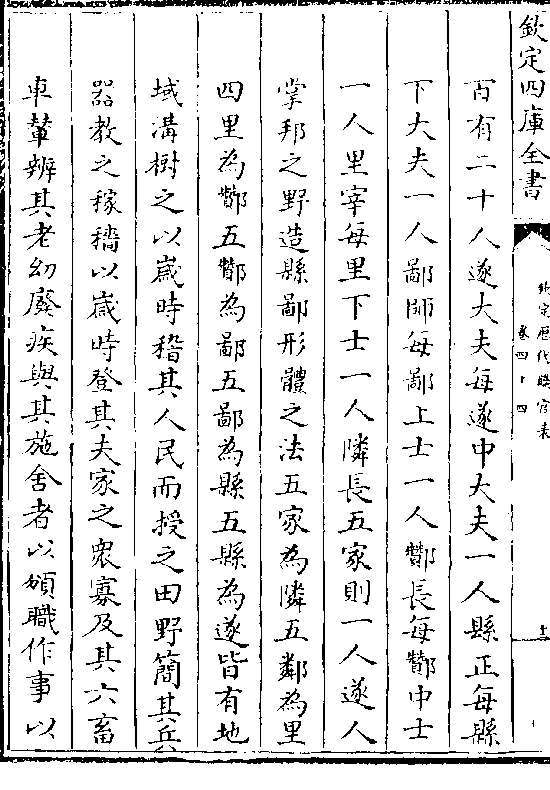 欽定四庫全書
欽定歷代職官表
卷四十四
十
百有二十人遂大夫每遂中大夫一人縣正每縣
下大夫一人鄙師每鄙上士一人酇長每酇中士
一人里宰每里下士一人隣長五家則一人遂人
掌邦之野造縣鄙形體之法五家為隣五鄰為里
四里為酇五酇為鄙五鄙為縣五縣為遂皆有地
域溝樹之以歲時稽其人民而授之田野簡其兵
器教之稼穡以歲時登其夫家之衆寡及其六畜
車輦辨其老幼廢疾與其施舍者以頒職作事以